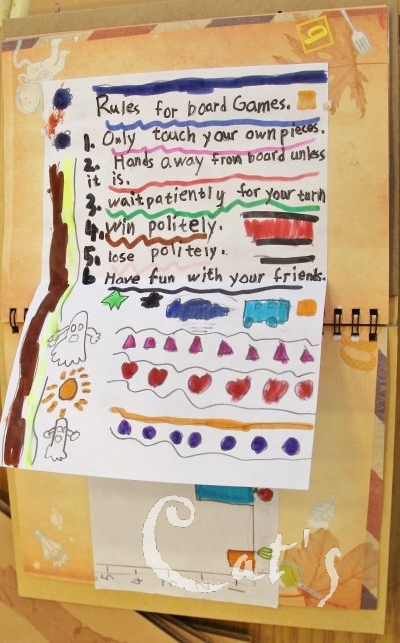 Rules for board Games.
1. Only touch your own pieces.
2. Hands away from board unless
it is.
3. wait patiently for your turn
4. Win politely.
5. lose politely.
6 Have fun with your friends.
Cat's